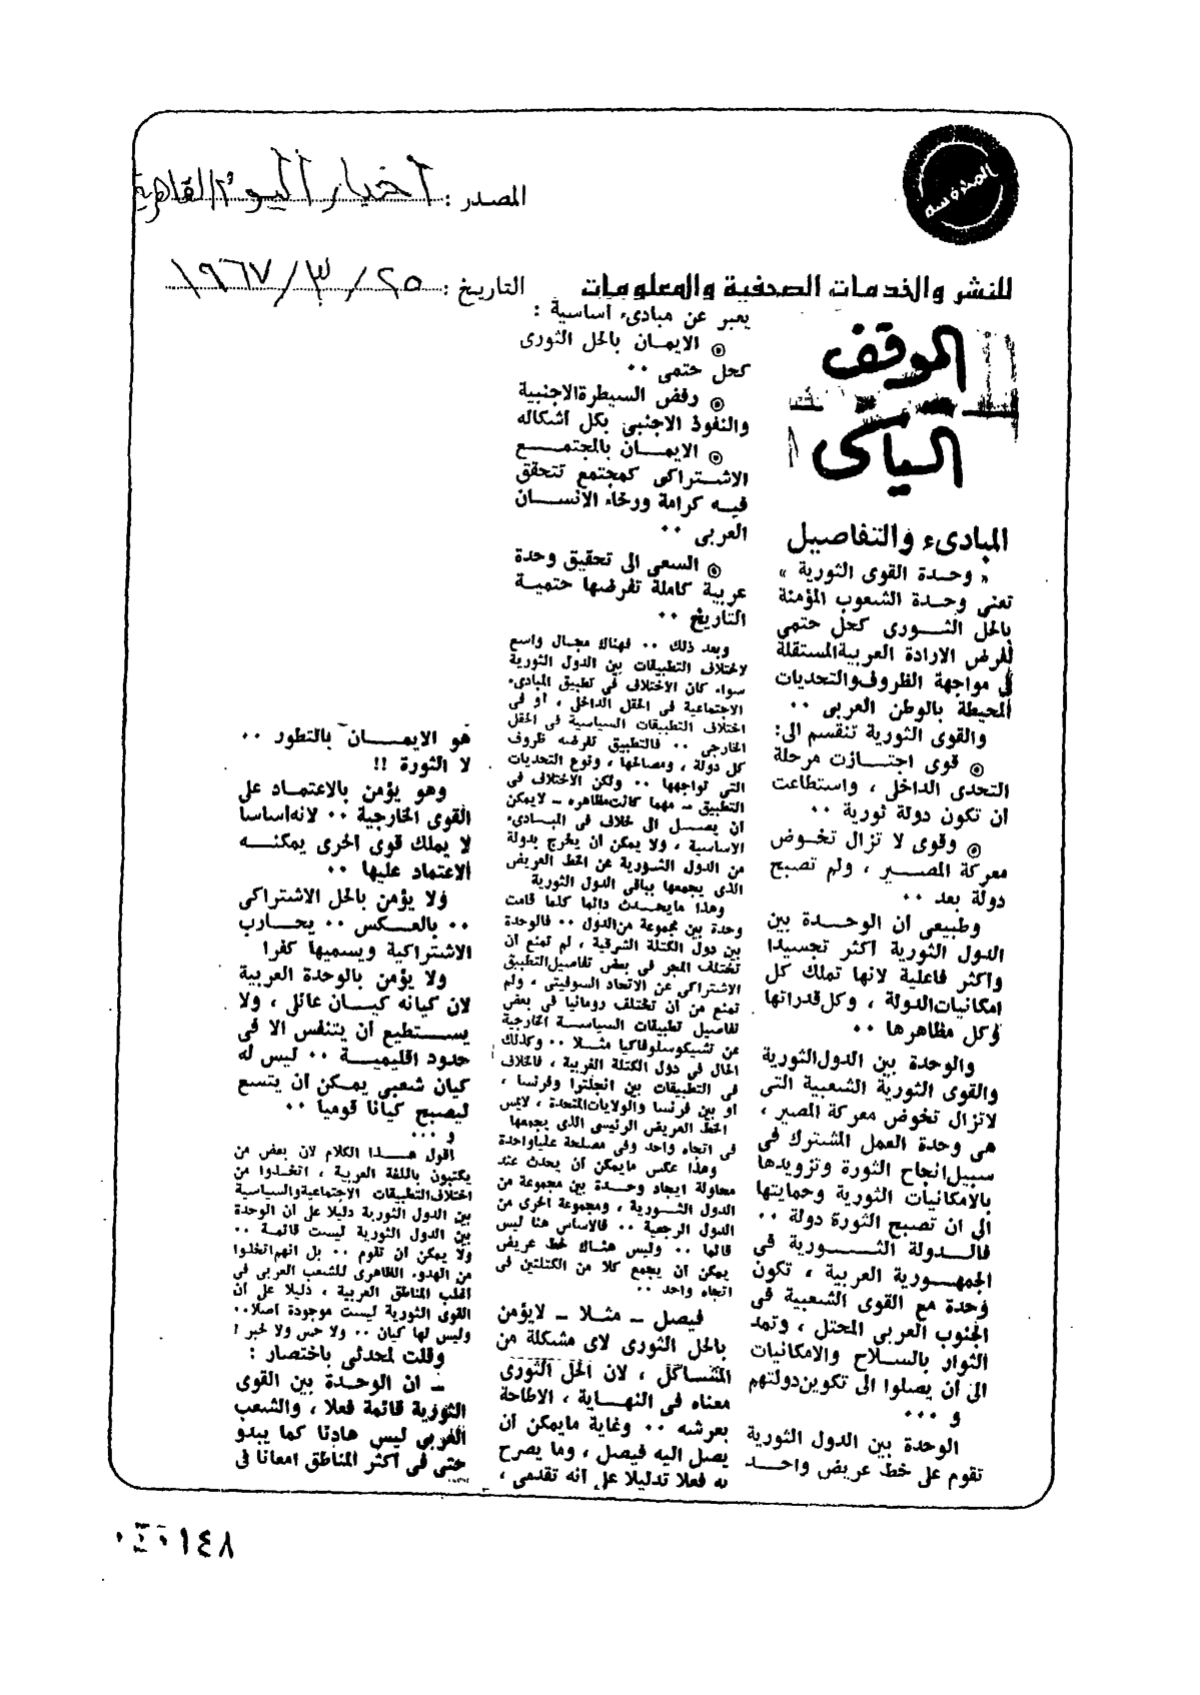 المدروسه
المصدر : أخبار اليوم القاهرية
للنشر والخدمات الصحفية والمعلومات
التاريخ : ٢٥ / ٣ / ١٩٦٧
الموقف
السياسى
المبادىء والتفاصيل
« وحدة القوى الثورية »
تعنى وحدة الشعوب المؤمنة
بالحل الثورى كحل حتمى
لفرض الارادة العربية المستقلة
فى مواجهة الظروف والتحديات
المحيطة بالوطن العربى ٠٠
والقوى الثورية تنقسم الى:
◎ قوى اجتازت مرحلة
التحدى الداخلى ، واستطاعت
ان تكون دولة ثورية ٠٠
◎ وقوى لا تزال تخوض
معركة المصير ، ولم تصبح
دولة بعد ٠٠
وطبيعى ان الوحدة بين
الدول الثورية اكثر تجسيدا
واكثر فاعلية لانها تملك كل
امكانيات الدولة ، وكل قدراتها
وكل مظاهرها ٠٠
والوحدة بين الدول الثورية
والقوى الثورية الشعبية التى
لاتزال تخوض معركة المصير ،
هى وحدة العمل المشترك فى
سبيل انجاح الثورة وتزويدها
بالامكانيات الثورية وحمايتها
الى ان تصبح الثورة دولة ٠٠
فالدولة الثورية فى
الجمهورية العربية ، تكون
وحدة مع القوى الشعبية فى
الجنوب العربى المحتل ، وتمد
الثوار بالسلاح والامكانيات
الى أن يصلوا الى تكوين دولتهم
و ٠٠٠
الوحدة بين الدول الثورية
تقوم على خط عريض واحد
يعبر عن مبادىء اساسية :
◎ الايمان بالحل الثورى
كحل حتمى ٠٠
◎ رفض السيطرة الاجنبية
والنفوذ الاجنبى بكل أشكاله
◎ الايمان بالمجتمع
الاشتراكى كمجتمع تتحقق
فيه كرامة ورخاء الانسان
العربى ٠٠
◎ السعى الى تحقيق وحدة
عربية كاملة تفرضها حتمية
التاريخ ٠٠
وبعد ذلك ٠٠ فهناك مجال واسع
لاختلاف التطبيقات بين الدول الثورية
سواء كان الاختلاف فى تطبيق المبادىء
الاجتماعية فى الحقل الداخلى ، أو فى
اختلاف التطبيقات السياسية فى الحقل
الخارجى ٠٠ فالتطبيق تفرضه ظروف
كل دولة ، ومصالحها ، ونوع التحديات
التى تواجهها ٠٠ ولكن الاختلاف فى
التطبيق – مهما كانت مظاهره – لايمكن
ان يصل الى خلاف فى المبادىء
الاساسية ، ولا يمكن أن يخرج بدولة
من الدول الثورية عن الخط العريض
الذى يجمعها بباقى الدول الثورية
وهذا مايحدث دائما كلما قامت
وحدة بين مجموعة من الدول ٠٠ فالوحدة
بين دول الكتلة الشرقية ، لم تمنع أن
تختلف المجر فى بعض تفاصيل التطبيق
الاشتراكى عن الاتحاد السوفيتى ، ولم
تمنع من أن تختلف رومانيا فى بعض
تفاصيل تطبيقات السياسة الخارجية
عن تشيكوسلوفاكيا مثلا ٠٠ وكذلك
الحال فى دول الكتلة الغربية ، فالخلاف
فى التطبيقات بين انجلترا وفرنسا ،
او بين فرنسا والولايات المتحدة ، لايمس
الخط العريض الرئيسى الذى يجمعها
فى اتجاه واحد وفى مصلحة عليا واحدة
وهذا عكس مايمكن أن يحدث عند
محاولة ايجاد وحدة بين مجموعة من
الدول الثورية ، ومجموعة اخرى من
الدول الرجعية ٠٠ فالاساس هنا ليس
قائما ٠٠ وليس هناك خط عريض
يمكن أن يجمع كلا من الكتلتين فى
اتجاه واحد ٠٠
فيصل – مثلا – لايؤمن
بالحل الثورى لاى مشكلة من
المشاكل ، لان الحل الثورى
معناه فى النهاية ، الاطاحة
بعرشه ٠٠ وغاية مايمكن أن
يصل اليه فيصل ، وما يصرح
به فعلا تدليلا على أنه تقدمى ،
هو الايمان بالتطور ٠٠
لا الثورة !!
وهو يؤمن بالاعتماد على
القوى الخارجية ٠٠ لانه اساسا
لا يملك قوى اخرى يمكنه
الاعتماد عليها ٠٠
ولا يؤمن بالحل الاشتراكى
٠٠ بالعكس ٠٠ يحارب
الاشتراكية ويسميها كفرا
ولا يؤمن بالوحدة العربية
لان كيانه كيان عائلى ، ولا
يستطيع أن يتنفس الا فى
حدود اقليمية ٠٠ ليس له
كيان شعبى يمكن أن يتسع
ليصبح كيانا قوميا ٠٠
و ٠٠٠
اقول هذا الكلام لان بعض من
يكتبون باللغة العربية ، اتخذوا من
اختلاف التطبيقات الاجتماعية والسياسية
بين الدول الثورية دليلا على أن الوحدة
بين الدول الثورية ليست قائمة ٠٠
ولا يمكن أن تقوم ٠٠ بل انهم اتخذوا
من الهدوء الظاهرى للشعب العربى فى
اغلب المناطق العربية ، دليلا على أن
القوى الثورية ليست موجودة أصلا ٠٠
وليس لها كيان ٠٠ ولا حس ولا خبر !
وقلت لمحدثى باختصار :
– ان الوحدة بين القوى
الثورية قائمة فعلا ، والشعب
العربى ليس هادئا كما يبدو
حتى فى أكثر المناطق امعانا فى
١٤٨